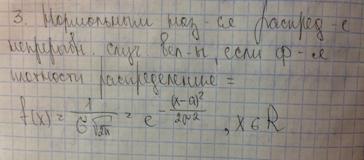 3. Нормальным наз-ся распред-е
непрерывн. случ вел-ы, если ф-я
плотности распределение =
f(x) = 1/(σ√2π) = e^(-(x-a)²/2σ²), x∈R